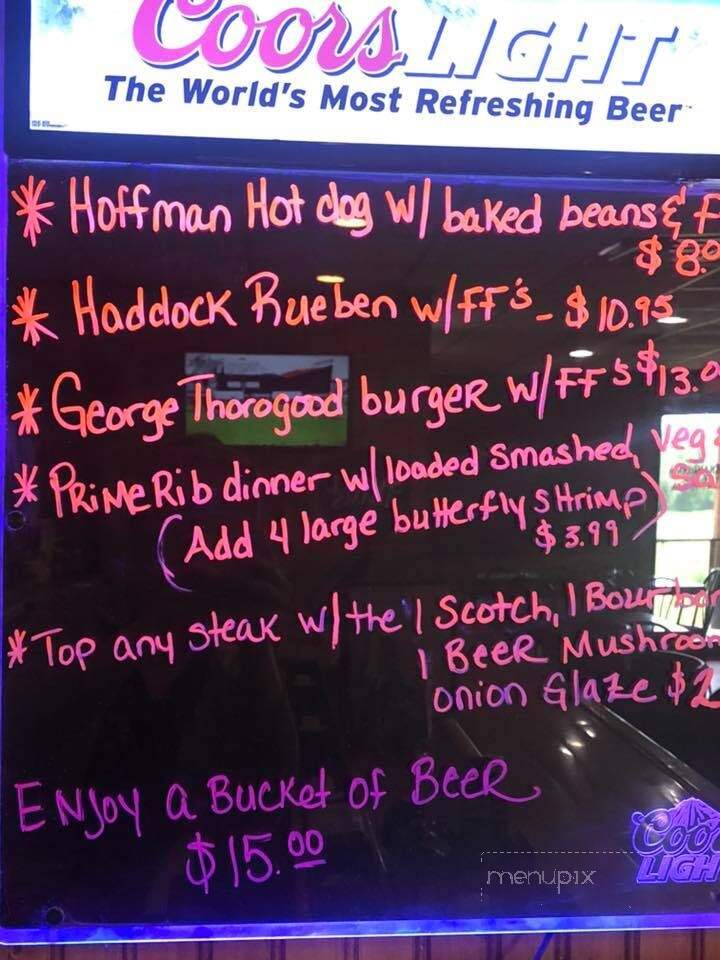 Coors LIGHT
The World's Most Refreshing Beer
* Hoffman Hot dog w/ baked beans & F
$8.0
* Haddock Rueben w/FF's - $10.95
* George Thorogood burger w/FF's $13.0
* Prime Rib dinner w/loaded smashed, veg
(Add 4 large butterfly shrimp)
$3.99
* Top any steak w/the 1 Scotch, 1 Bourbon
1 Beer Mushroom
onion Glaze $2
Enjoy a Bucket of Beer
$15.00
Coo
LIGH
menupix